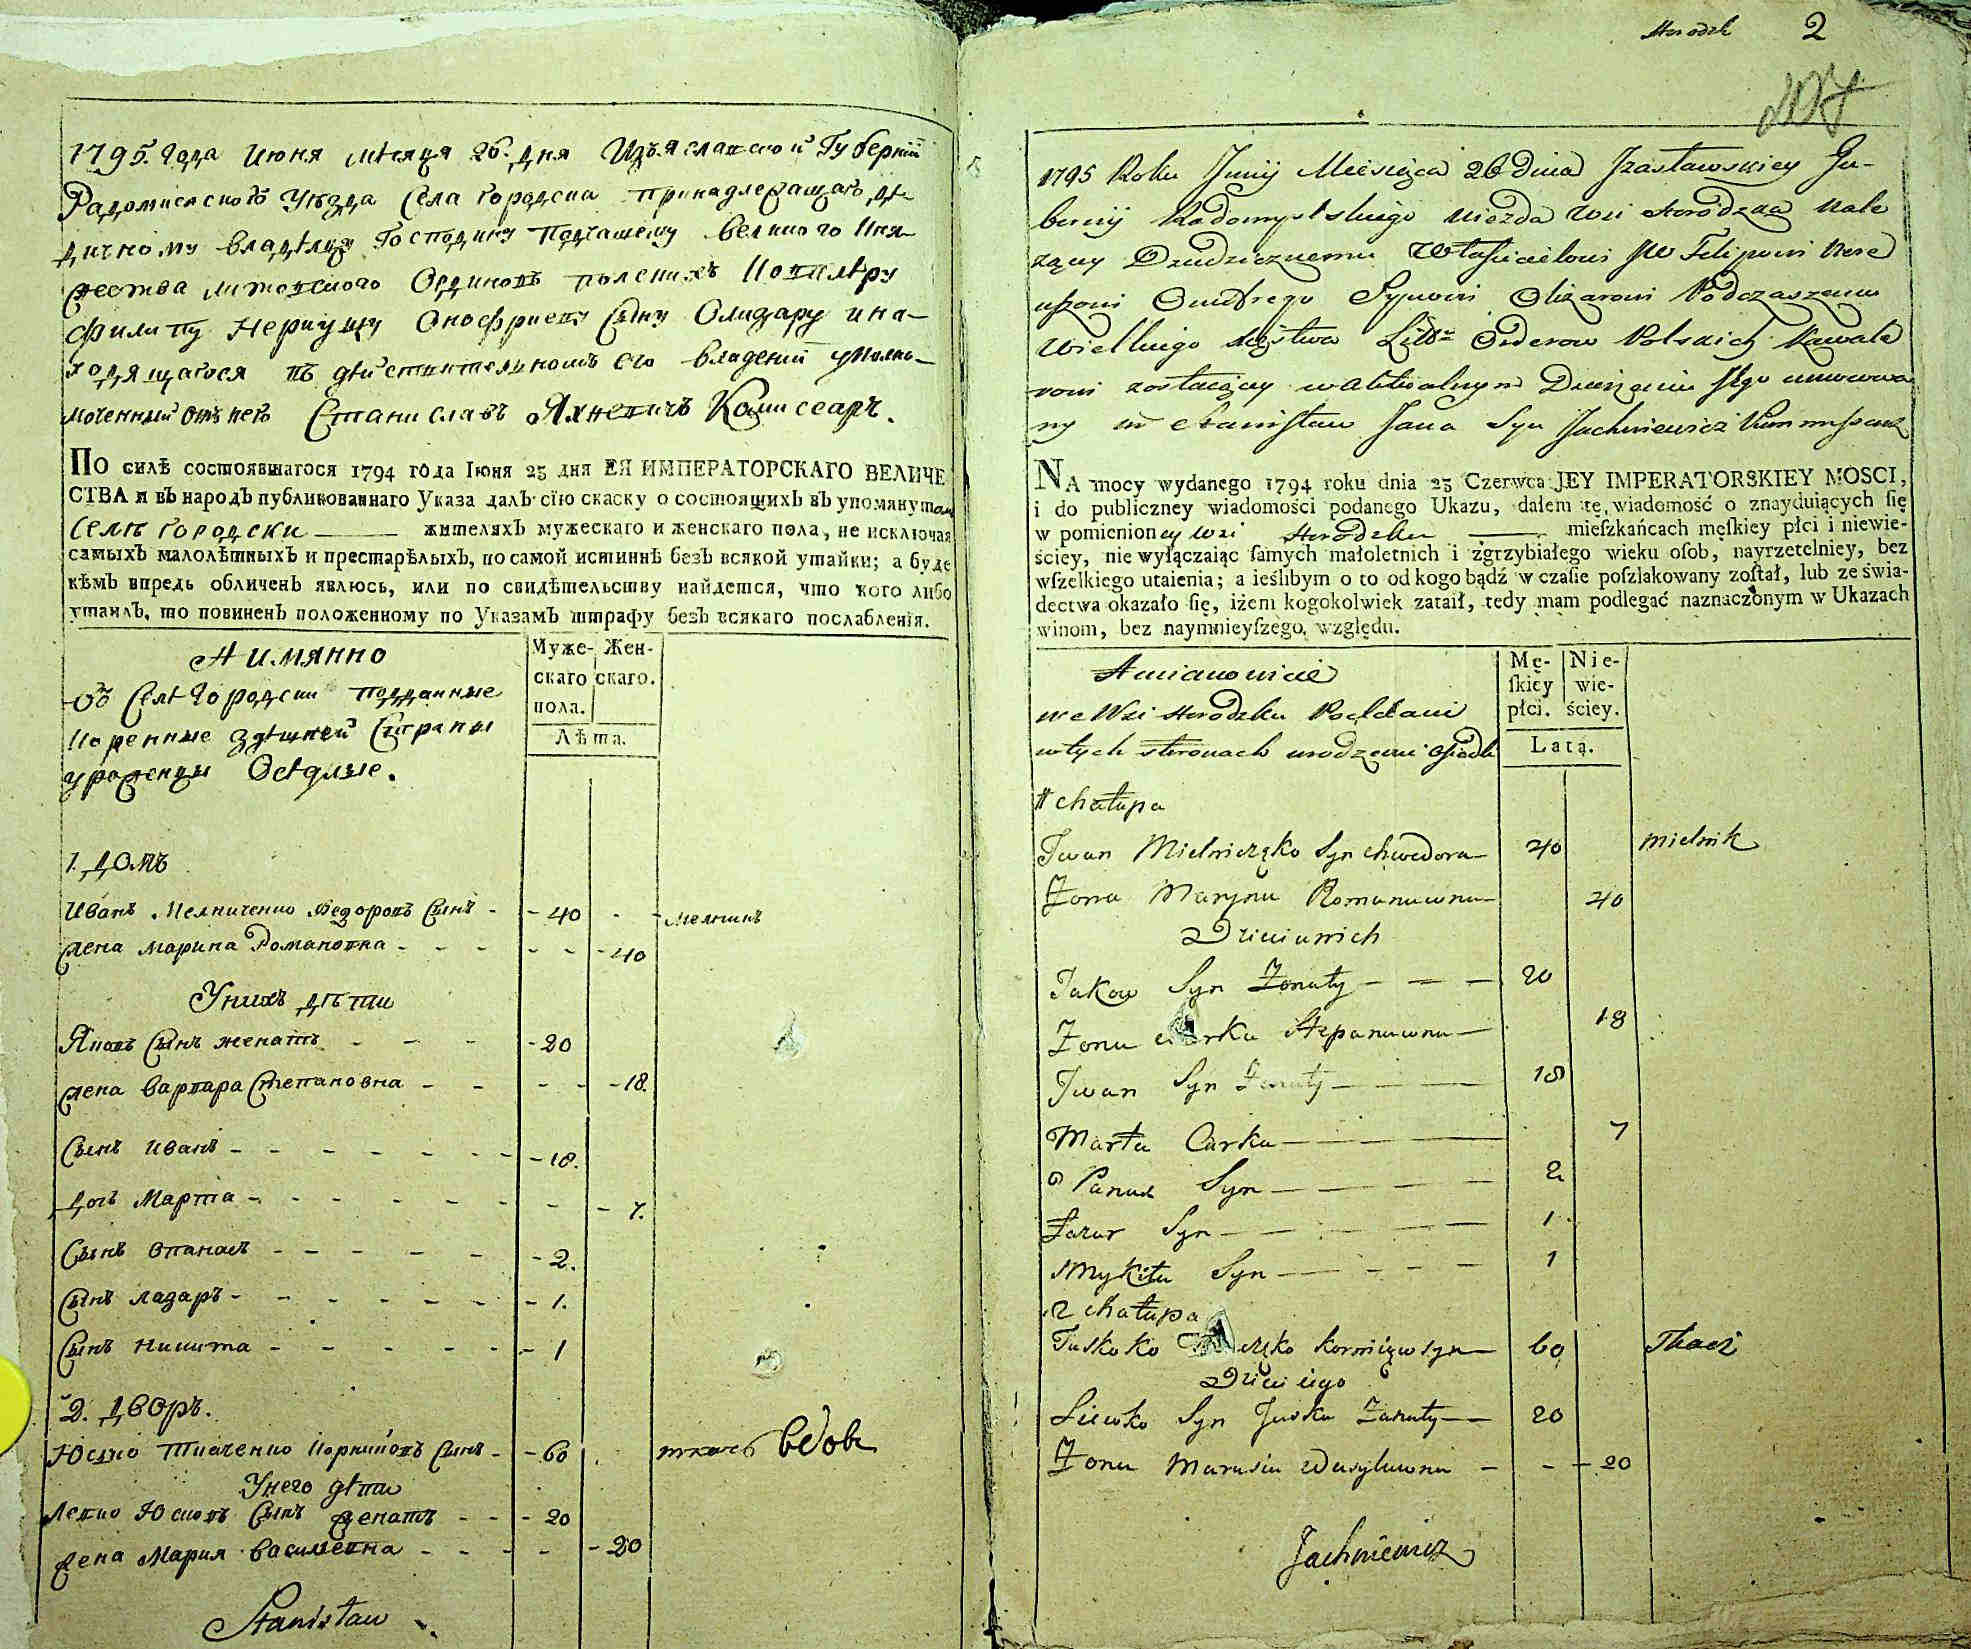 1795. Года Июня мѣсяця 26. дня Изъяславской Губерніи
Радомисского Уѣзда Села Городска принадлежащаго дѣ-
дичному владѣлцу Господину Подчашему великого Кня-
жества литовского Ординовъ полскихъ Кавалѣру
Филипу Нериушу Онофриеву Сыну Олизару и на-
ходящагося въ дѣйствителномъ его владеніи уполно-
моченный отъ него Станиславъ Яхневичъ Комиссаръ.
По силѣ состоявшагося 1794 года Іюня 23 дня ЕЯ ИМПЕРАТОРСКАГО ВЕЛИЧЕ
СТВА и въ народъ публикованнаго Указа далъ сїю скаску о состоящихъ въ упомянутом
Селѣ Городски жителяхъ мужескаго и женскаго пола, не исключая
самыхъ малолѣтныхъ и престарѣлыхъ, по самой истиннѣ безъ всякой утайки; а буде
кѣмъ впредь обличенъ явлюсь, или по свидѣтельству найдется, что кого либо
утаилъ, то повиненъ положенному по Указамъ штрафу безъ всякаго послабленїя.
А имянно
Муже- Жен-
скаго скаго.
пола.
Лѣта.
Въ Селѣ Городски подданные
Коренные здѣшней Страны
уроженцы Осѣдлые.
1. домъ
Иванъ Мелниченко Федоровъ Сынъ - - 40 - - мелникъ
жена Марина Романовна - - - - - - 40
Унихъ дѣти
Яковъ Сынъ женатъ - - - - 20
жена Варвара Степановна - - - - - 18.
Сынъ Иванъ - - - - - - - 18.
дочъ Марта - - - - - - - - 7.
Сынъ Опанасъ - - - - - - 2.
Сынъ Лазаръ - - - - - - - 1.
Сынъ Никита - - - - - - 1
2. дворъ.
Юско Ткаченко Корнийовъ Сынъ - - 60 ткачъ вдовъ
Унего дѣти
Левко Юсковъ Сынъ женатъ - - - 20
жена Мария Василевна - - - - - 20
Stanisław
Horodsk 2
1795 Roku Junij Miesięca 26 dnia Izasławskiey Gu-
bernij Radomyslskiego Uiezda Wsi Horodzka Nale
żący Dziedzicznemu Właścicielowi JW Filipowi Nere
uszowi Onufrego Synowi Olizarowi Podczaszemu
Wielkiego Xięstwa Litt Orderow Polskich Kawale
rowi zostaiący w aktualnym Dzierżeniu Jego umocowa
ny Stanisław Jana Syn Jachniewicz Kommissarz
NA mocy wydanego 1794 roku dnia 23 Czerwca JEY IMPERATORSKIEY MOSCI,
i do publiczney wiadomości podanego Ukazu, dałem tę wiadomość o znayduiących ſię
w pomienioney wsi Horodzku mieſzkańcach męſkiey płci i niewie-
ściey, nie wyłączaiąc ſamych małoletnich i zgrzybiałego wieku oſob, nayrzetelniey, bez
wſzelkiego utaienia; a ieślibym o to od kogo bądź w czaſie poſzlakowany zoſtał, lub ze świa-
dectwa okazało ſię, iżem kogokolwiek zataił, tedy mam podlegać naznaczonym w Ukazach
winom, bez naymnieyſzego względu.
A mianowicie
Mę- Nie-
ſkiey wie-
płci. ściey.
Latą.
we Wsi Horodzku Poddani
w tych stronach urodzeni osiedli
1 chałupa
Iwan Mielniczęko Syn chwedora 40 Mielnik
Żona Maryna Romanuwna 40
Dzieci u nich
Jakow Syn Żonaty 20
Żona Stepanuwna 18
Iwan Syn 18
Marta Curka 7
Panas Syn 2
Łazar Syn 1
Mykita Syn 1
2 chałupa
Juśko korniiow syn 60 Tkacz
Dzieci iego
Liewko Syn Juśka Żonaty 20
Żona Marusia Wasyluwna - - - 20
Jachniewicz